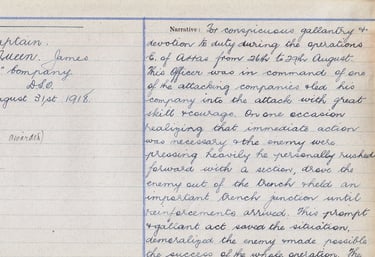 Captain.
Queen. James
" Company
D.S.O.
August 31st 1918.
Awarded)
Narrative: For conspicuous gallantry &
devotion to duty during the operations
E. of Arras from 26th to 29th August.
This Officer was in command of one
of the attacking companies & led his
company into the attack with great
skill & courage. On one occasion
realizing that immediate action
was necessary & the enemy were
pressing heavily he personally rushed
forward with a section, drove the
enemy out of the trench & held an
important trench junction until
reinforcements arrived. This prompt
& gallant act saved the situation,
demoralized the enemy & made possible
the success of the whole operation. The